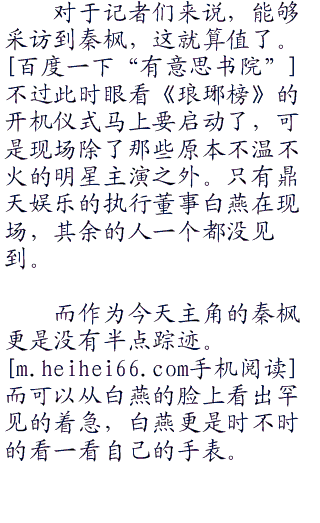 对于记者们来说，能够
采访到秦枫，这就算值了。
[百度一下“有意思书院”]
不过此时眼看《琅琊榜》的
开机仪式马上要启动了，可
是现场除了那些原本不温不
火的明星主演之外。只有鼎
天娱乐的执行董事白燕在现
场，其余的人一个都没见
到。
而作为今天主角的秦枫
更是没有半点踪迹。
[m.heihei66.com手机阅读]
而可以从白燕的脸上看出罕
见的着急，白燕更是时不时
的看一看自己的手表。